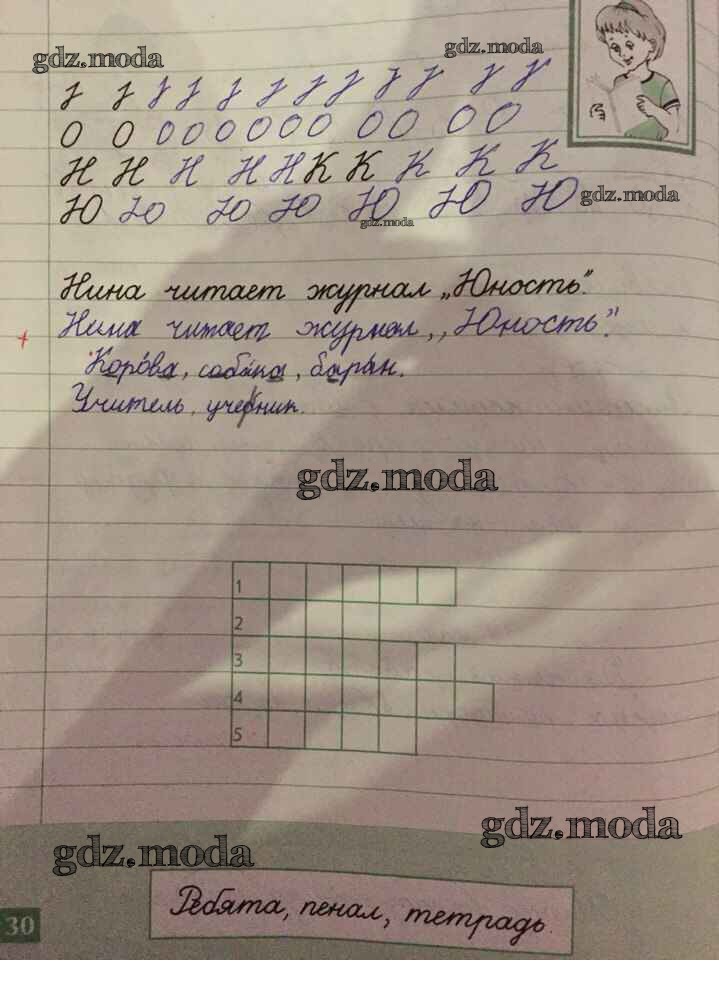 gdz.moda
gdz.moda
О О О О О О О О О О О О
Н Н Н Н Н К К К К К
Ю Ю Ю Ю Ю Ю Ю gdz.moda
gdz.moda
Нина читает журнал „Юность".
Нина читает журнал „Юность".
+
Корова, собака, баран.
Учитель, учебник.
gdz.moda
1
2
3
4
5
gdz.moda
gdz.moda
Ребята, пенал, тетрадь.
30